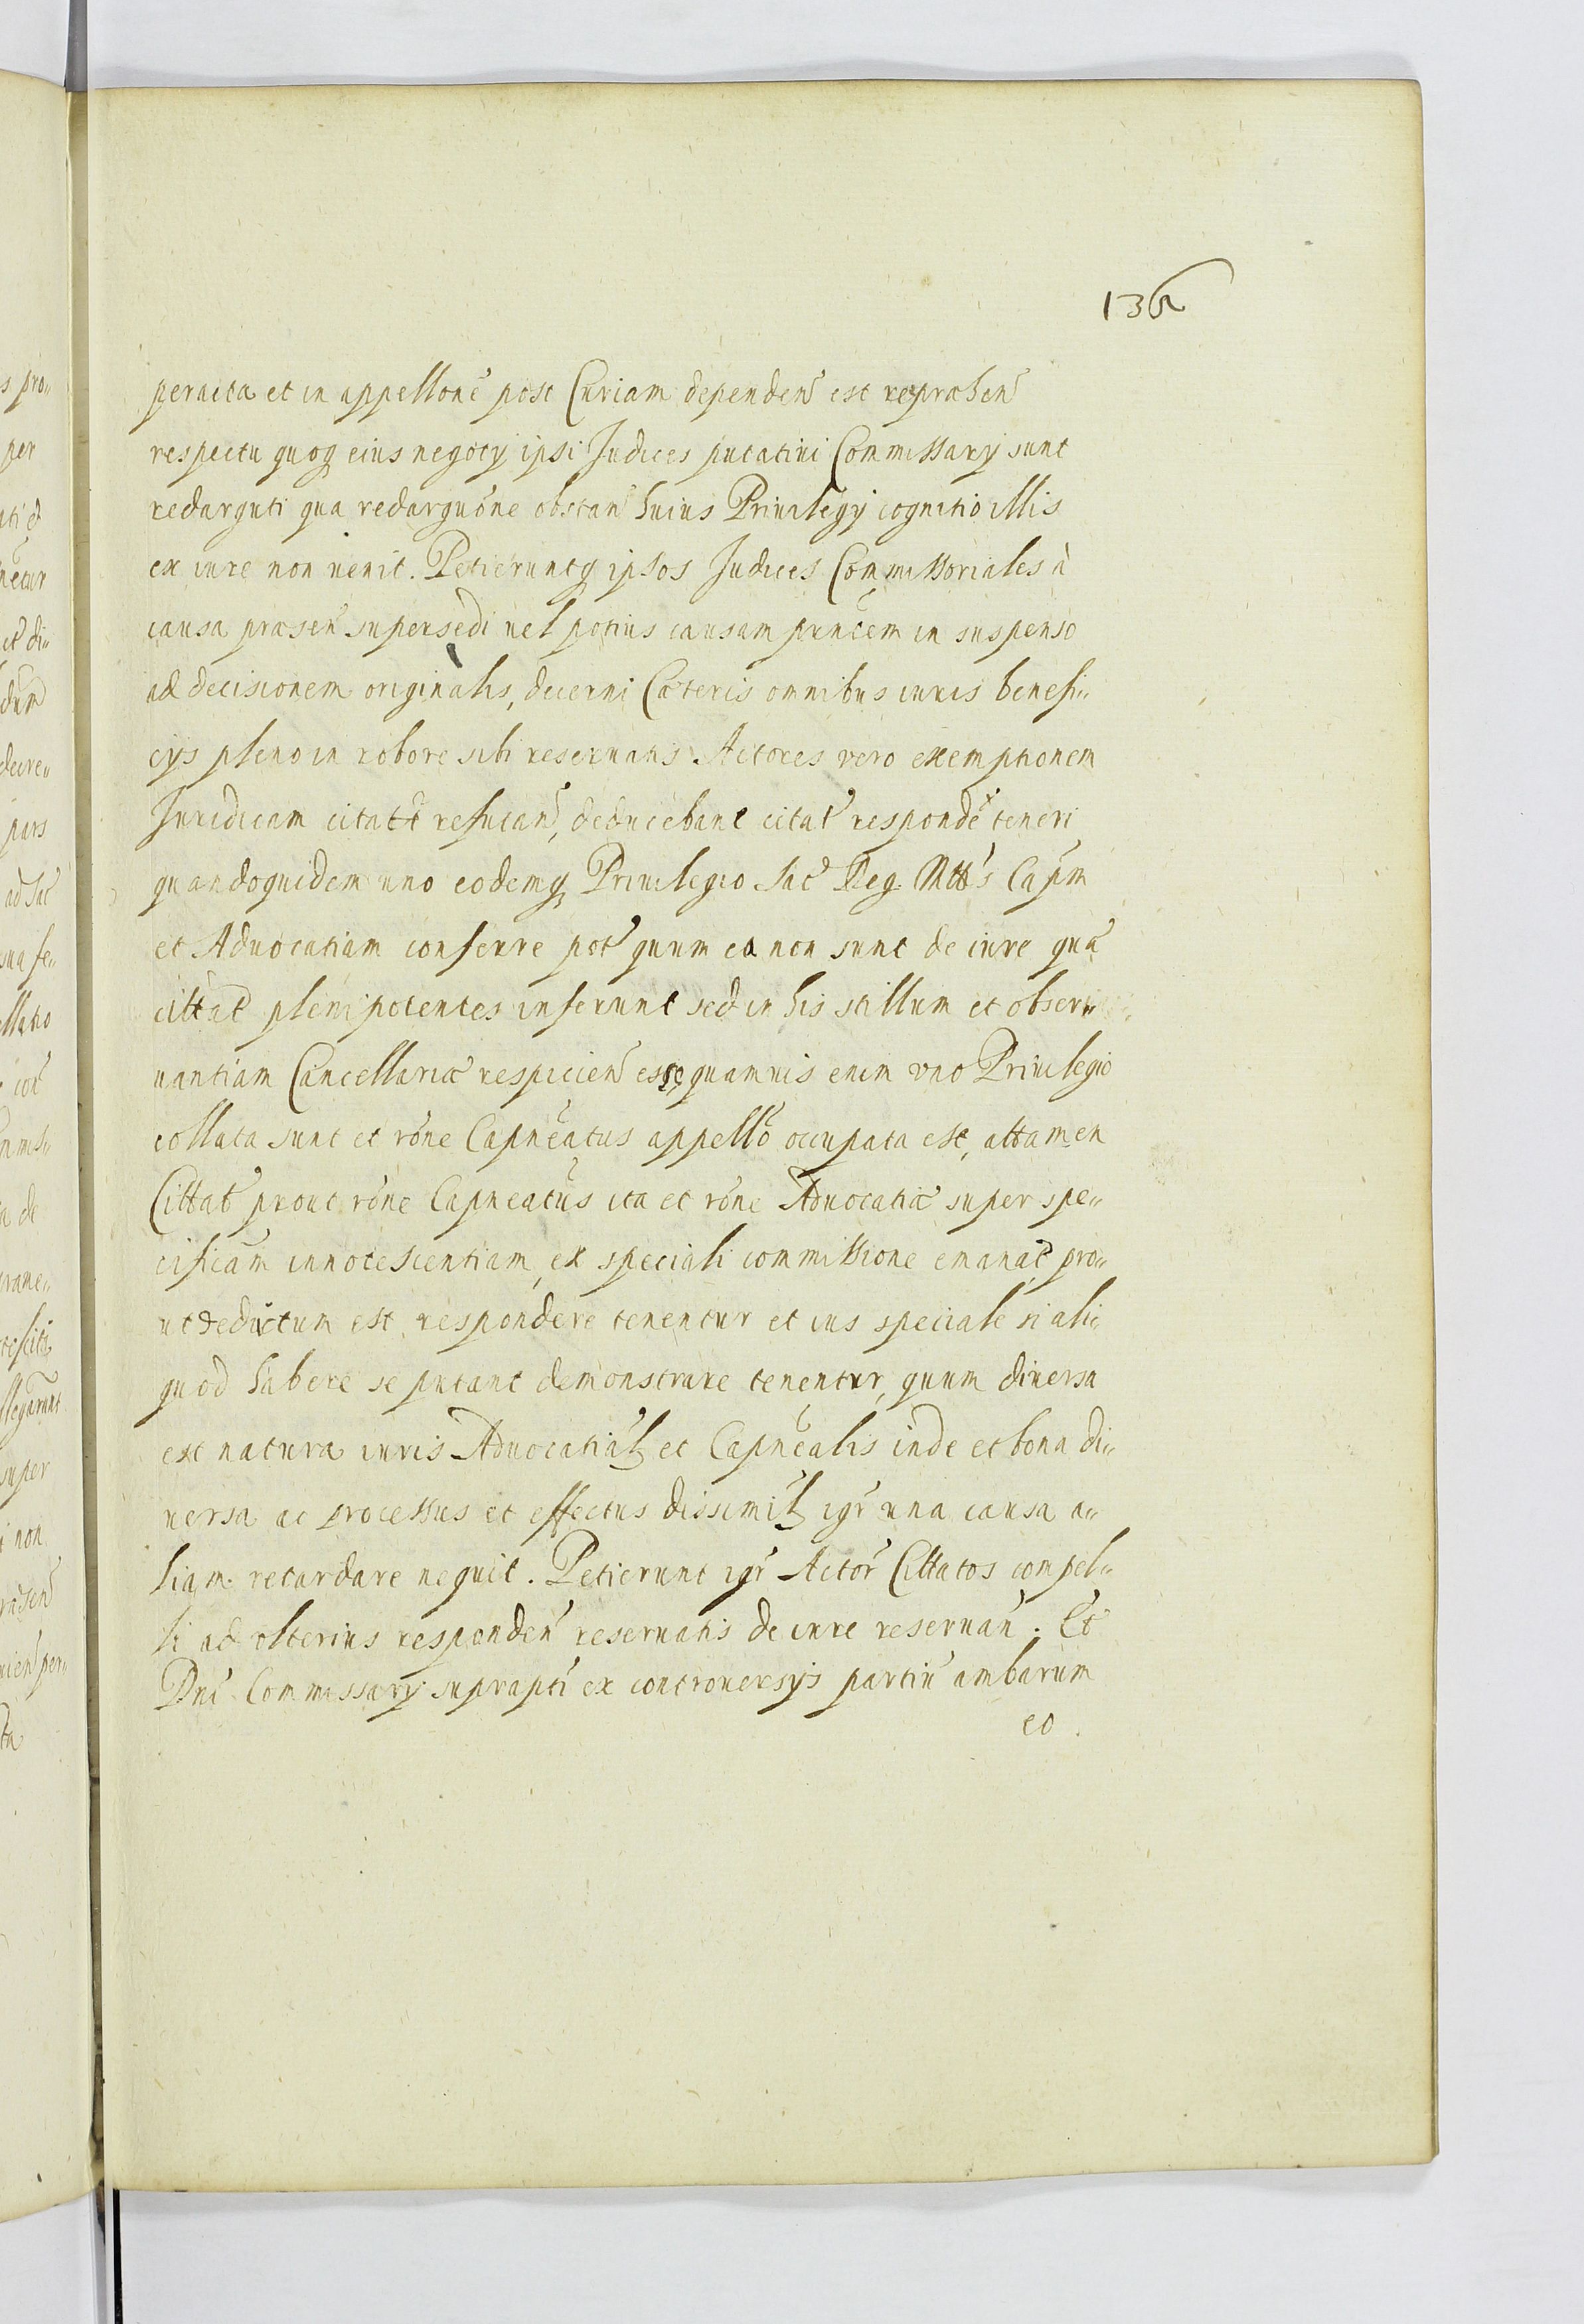 136
peracta et in appellone post Curiam dependen est reprahen
respectu quoq eius negoty ipsi Judices putatiui Commissary sunt
redarguti qua redarguone obstan huius Priuilegy cognitio illis
ex iure non uenit. Petieruntq ipsos Judices Commissoriales à
causa præsen supersedi uel potius causam pnncem in suspenso
ad decisionem originalis, decerni Cæteris omnibus iuris benefi„
cys pleno in robore sibi reseruatis. Actores vero exemptionem
Juridicam citatt refutan, deducebant citat responde teneri
quandoquidem uno eodemq Priuilegio Sac Reg. Mtt's Capm
et Aduocatiam conferre pot quum ea non sunt de iure qua
cittat plenipotentes inferunt sed in his stillum et obser„
uantiam Cancellariæ respicien esse, quamuis enim vno Priuilegio
collata sunt et rone Capneatus appello occupata est, attamen
Cittat prout rone Capneatus ita et rone Aduocatiæ super spe„
cificam innotescentiam, ex speciali commissione emanat, pro„
ut deductum est respondere tenentur et ius speciale si ali„
quod habere se putant demonstrare tenentur, quum diuersa
est natura iuris Aduocatial et Capnealis inde et bona di„
uersa ac processus et effectus dissimil igr una causa a„
liam retardare nequit. Petierunt igr Actor Cittatos compel„
li ad vlterius responden reseruatis de iure reseruan. Et
Dni Commissary suprapti ex controuersys partiu ambarum
eo
s pro„
per
et di„
decre„
pars
ad Sac
sua fe„
ellatio
con
a de
super
non